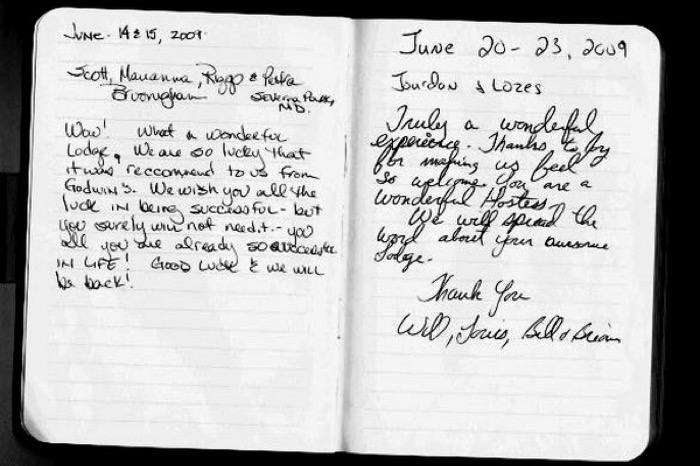 June 14 & 15, 2009
Scott, Marianna, Riggo & Parka
Severna Park,
MD.
Wow! What a wonderful
Lodge. We are so lucky that
it was reccommend to us from
Godwin's. We wish you all the
luck in being successful - but
you surely will not need it - you
all you are already so successful
IN LIFE! GOOD LUCK & we will
be back!
June 20 - 23, 2009
Jourdan & Lozes
Truly a wonderful
experience. Thanks to Joy
for making us feel
so welcome. You are a
wonderful Hostess.
We will spread the
word about your awesome
Lodge.
Thank You
Will, Louis, Bill & Brian